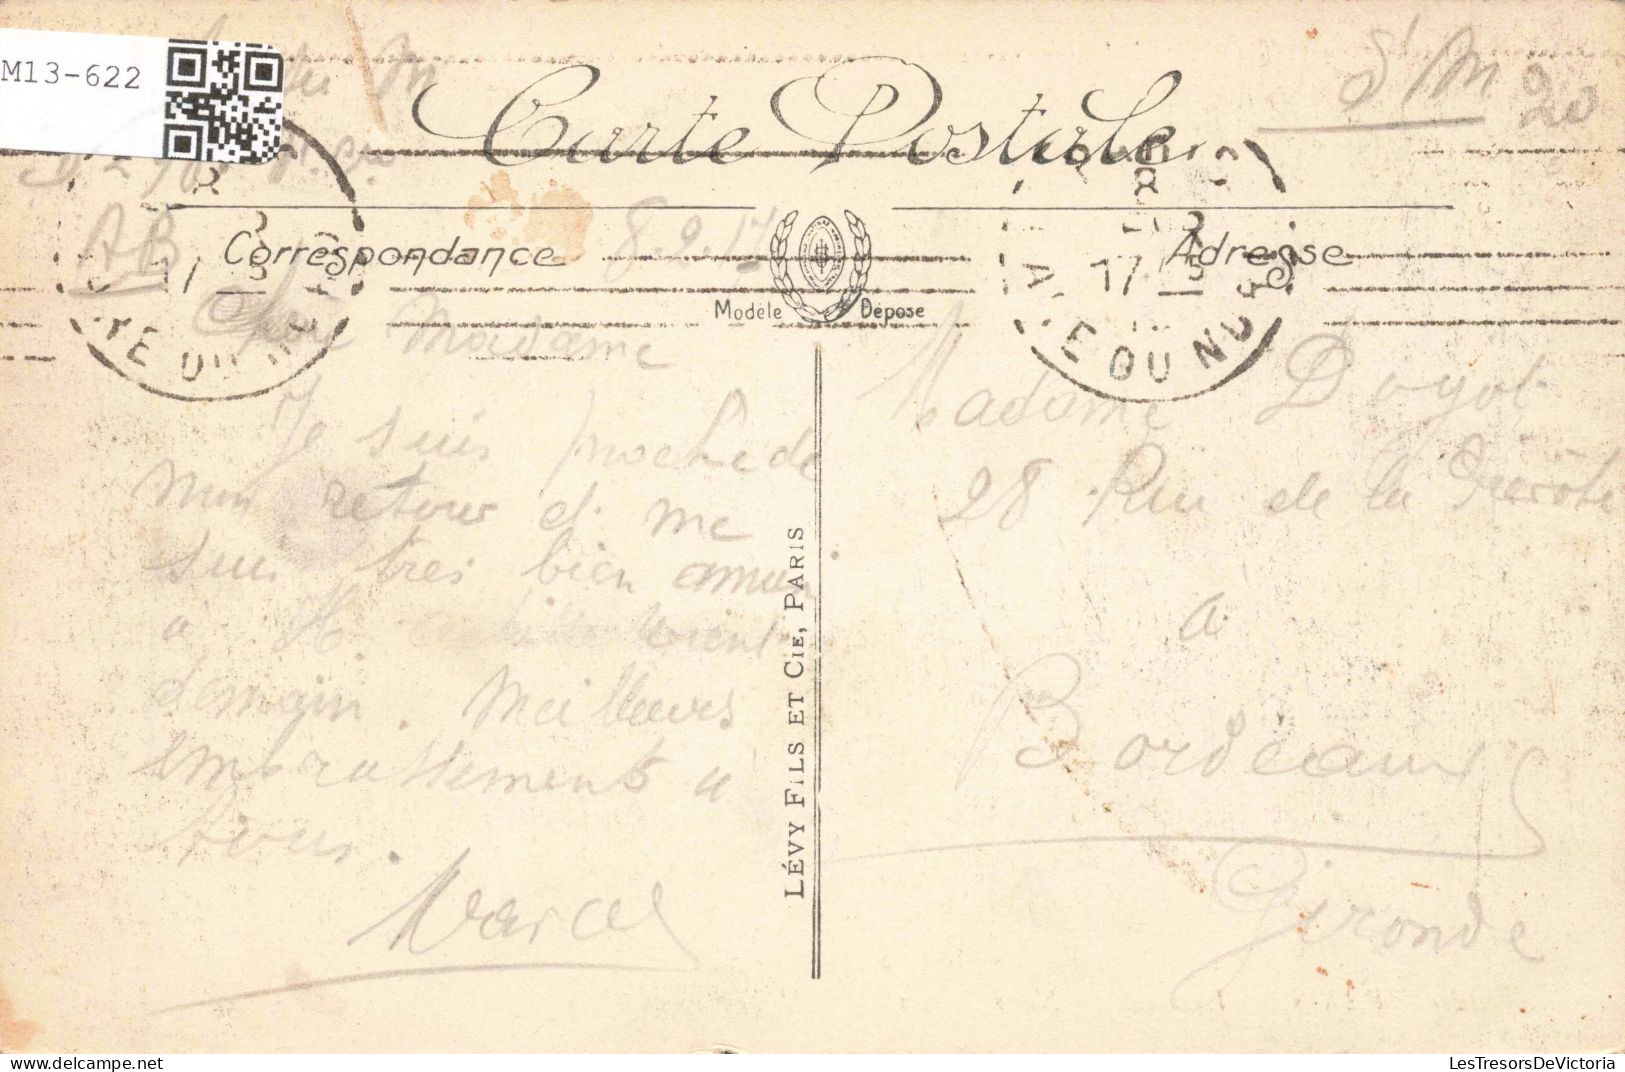 M13-622
St M 20
Carte Postale
AB
Correspondance
8.2.17
Adresse
Modèle Déposé
Chère Madame
Je suis proche de
mon retour et me
suis très bien
a H. vient
demain. Meilleurs
embrassements a
tous.
Marcel
LÉVY FILS ET CIE, PARIS
Madame Doyot
28 Rue de la
a
Bordeaux
Gironde
17
RE DU NORD
LesTresorsDeVictoria